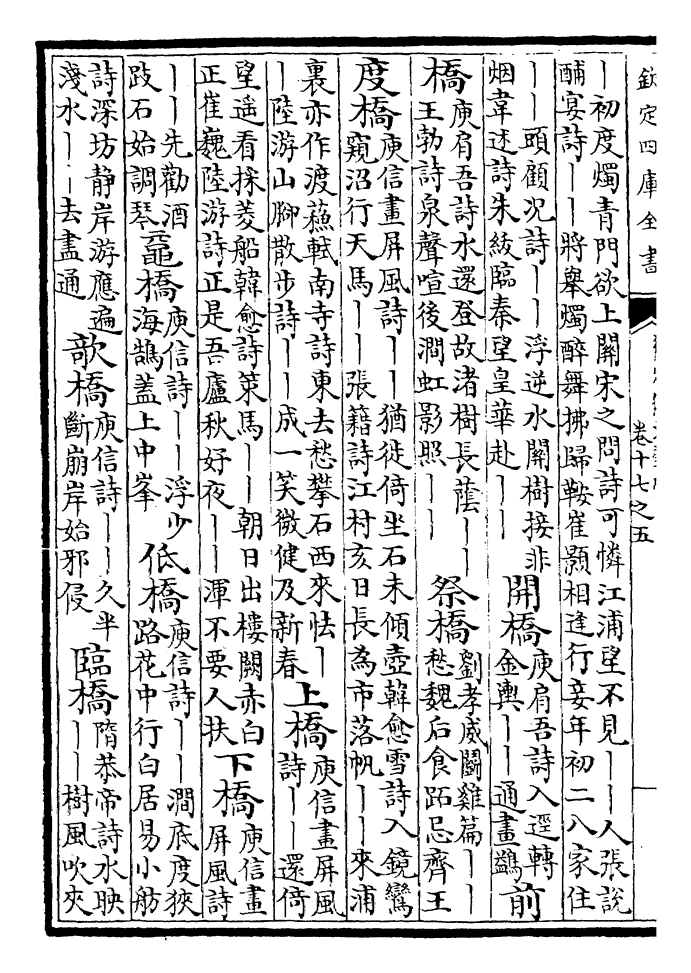 欽定四庫全書
卷十七之五
｜初度燭青門欲上關宋之問詩可憐江浦望不見｜｜人張說
酺宴詩｜｜將舉燭醉舞拂歸鞍崔顥相逢行妾年初二八家住
｜｜頭顧况詩｜｜浮逆水關樹接非
烟韋述詩朱紱臨秦望皇華赴｜｜
開橋
庾肩吾詩入逕轉
金輿｜｜通畫鷁
前
橋
庾肩吾詩水還登故渚樹長䕃｜｜
王勃詩泉聲喧後澗虹影照｜｜
祭橋
劉孝威鬭雞篇｜｜
愁魏后食跖忌齊王
度橋
庾信畫屏風詩｜｜猶徙倚坐石未傾壺韓愈雪詩入鏡鸞
窺沼行天馬｜｜張籍詩江村亥日長為市落帆｜｜來浦
裏亦作渡蘇軾南寺詩東去愁攀石西來怯｜
｜陸游山腳散步詩｜｜成一笑微健及新春
上橋
庾信畫屏風
詩｜｜還倚
望遥看採菱船韓愈詩菜馬｜｜朝日出樓闕赤白
正崔巍陸游詩正是吾廬秋好夜｜｜渾不要人扶
下橋
庾信畫
屏風詩
｜｜先勸酒
跂石始調琴
黿橋
庾信詩｜｜浮少
海鵠蓋上中峯
低橋
庾信詩｜｜澗底度狹
路花中行白居易小舫
詩深坊静岸游應遍
淺水｜｜去盡通
歌橋
庾信詩｜｜久半
斷崩岸始邪侵
臨橋
隋恭帝詩水映
｜｜樹風吹夾